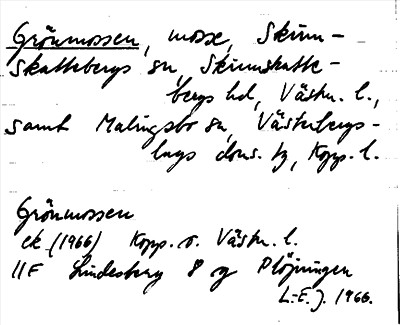 Grönmossen, mosse, Skinn-
skattebergs sn, Skinnskatte-
bergs hd, Västm. l.,
samt Malingsbo sn, Västerbergs-
lags doms. tg, Kopp. l.
Grönmossen
ek (1966) Kopp. o. Västm. l.
11F Lindesberg 8 g Plöjningen
L.-E. J. 1966.